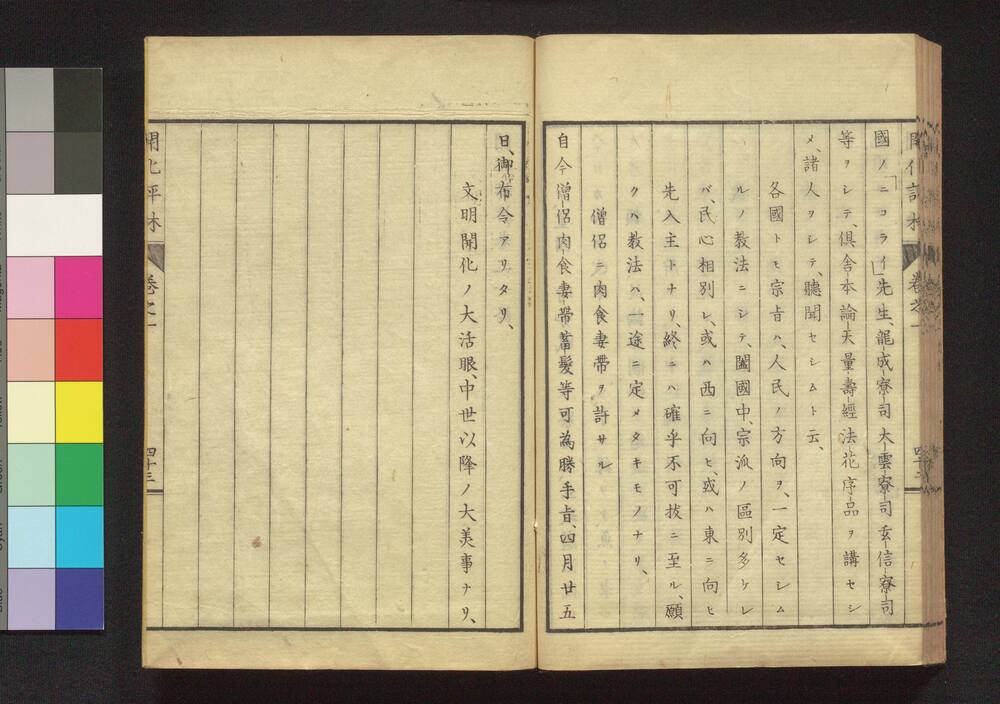 開化評林 卷之一 四十三
國ノ「ニコライ」先生、龍成寮司大雲寮司玄信寮司
等ヲシテ、倶舎本論天量壽經法花序品ヲ講セシ
メ、諸人ヲシテ、聽聞セシムト云、
各國トモ宗旨ハ、人民ノ方向ヲ、一定セシム
ルノ教法ニシテ、闔國中、宗派ノ區別多ケレ
バ、民心相別レ、或ハ西ニ向ヒ、或ハ東ニ向ヒ
先入主トナリ、終ニハ確乎不可拔ニ至ル、願
クハ教法ハ、一途ニ定メタキモノナリ、
僧侶ニ肉食妻帶ヲ許サル
自今僧侶肉食妻帶蓄髮等可為勝手旨、四月廿五
日、御布令アリタリ、
文明開化ノ大活眼、中世以降ノ大美事ナリ、
開化評林 卷之一 四十三